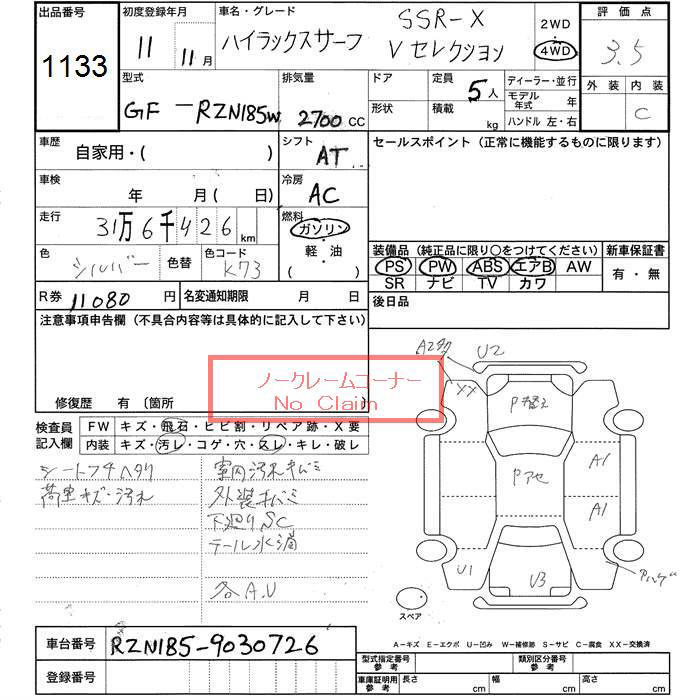 出品番号
1133
初度登録年月
11 11月
車名・グレード
ハイラックスサーフ
SSR-X
Vセレクション
2WD
・
4WD
評価点
3.5
外装 内装
C
型式
GF-RZN185W
排気量
2700 cc
ドア
形状
定員 5人
積載 kg
ディーラー・並行
モデル年式 年
ハンドル 左・右
車歴
自家用・( )
シフト
AT
セールスポイント(正常に機能するものに限ります)
車検
年 月( 日)
冷房
AC
走行
31万6千426 km
燃料
ガソリン
軽・油
( )
色
シルバー
色替
色コード
K73
装備品(純正品に限り○をつけてください)
新車保証書
PS PW ABS エアB AW
SR ナビ TV カワ
有・無
R券 11080 円
名変通知期限 月 日
後日品
注意事項申告欄(不具合内容等は具体的に記入して下さい)
ノークレームコーナー
No Claim
修復歴 有 〔箇所
検査員記入欄
FW キズ・飛石・ヒビ割・リペア跡・X要
内装 キズ・汚レ・コゲ・穴・スレ・キレ・破レ
荷室キズ・汚れ
室内汚れキバミ
下廻りSC
各A.U
U2
XX
P替え
Pアセ
A1
A1
U1
U3
スペア
A-キズ E-エクボ U-凹み W-補修跡 S-サビ C-腐食 XX-交換済
車台番号
RZN185-9030726
登録番号
型式指定番号
参考
類別区分番号
参考
車庫証明用
参考
長さ cm
幅 cm
高さ cm